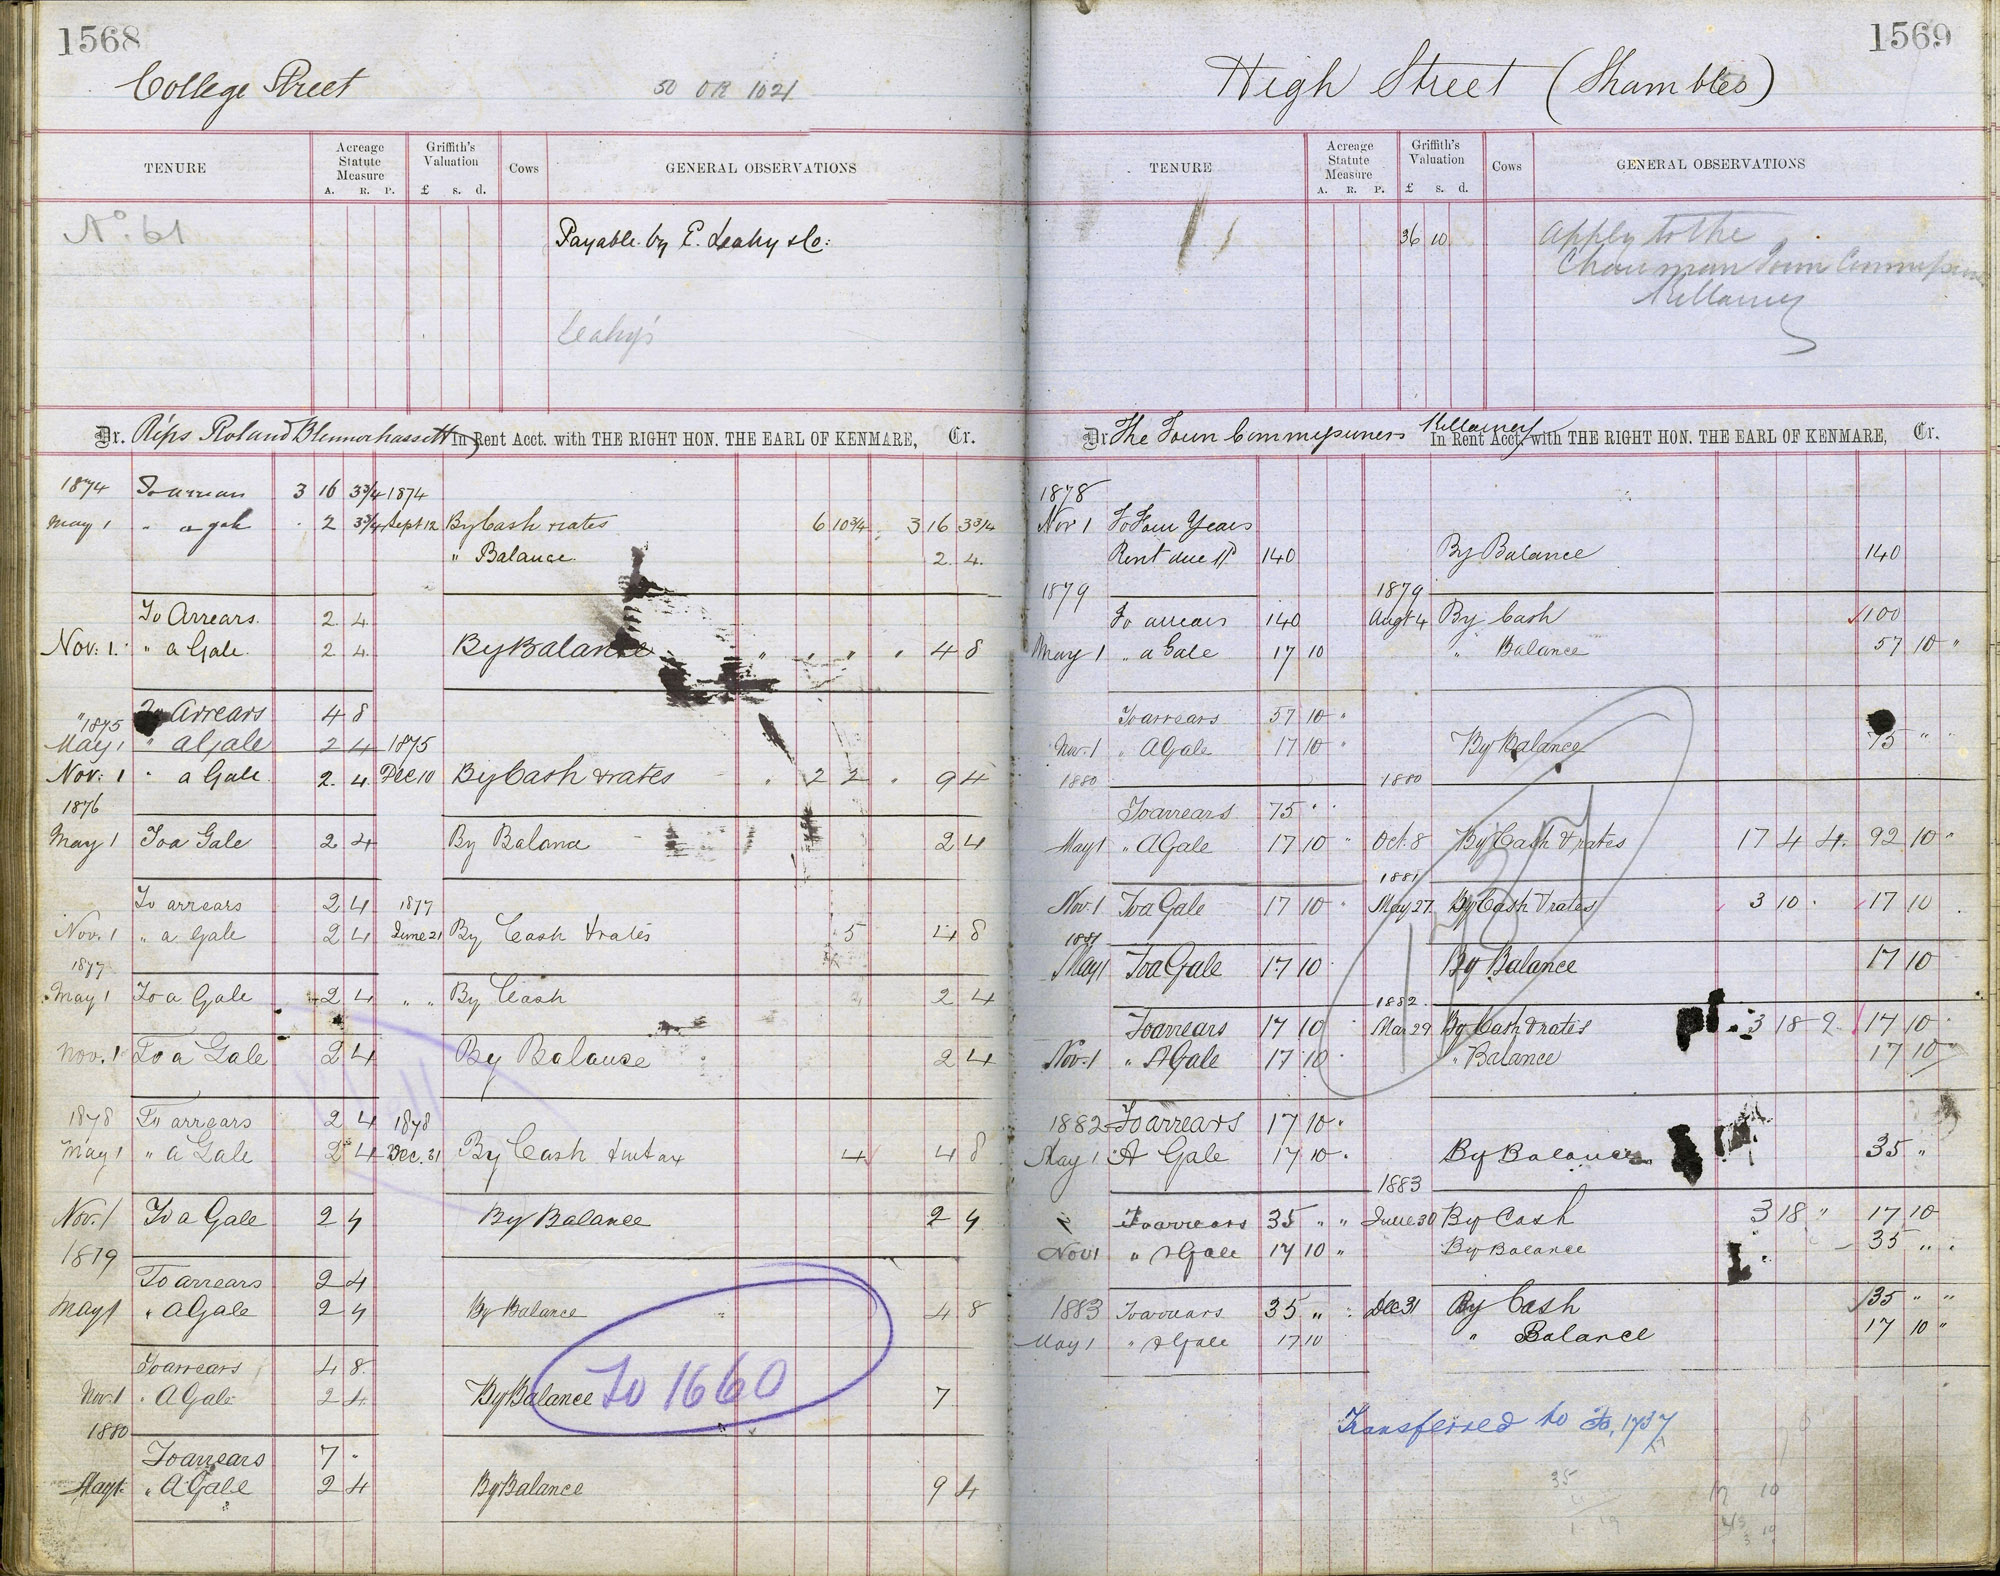 1568
College Street
50 OR 1021
TENURE
Acreage Statute Measure
A. R. P.
Griffith's Valuation
£ s. d.
Cows
GENERAL OBSERVATIONS
No. 61
Payable by E. Leahy & Co:
Leahy's
Dr. Reps Roland Blennerhassett In Rent Acct. with THE RIGHT HON. THE EARL OF KENMARE, Cr.
1874 To arrears 3 16 3 3/4 1874
May 1 " a gale . 2 3 3/4 Sept 12 By Cash & rates 6 10 3/4 3 16 3 3/4
" Balance 2. 4.
To Arrears. 2 4
Nov: 1. " a Gale. 2 4. By Balance " " " " 4 8
To Arrears 4 8
" 1875
May 1 " a Gale 2 4 1875
Nov: 1 " a Gale. 2. 4. Dec 10 By Cash & rates " 2 2 " 9 4
1876
May 1 To a Gale 2 4 By Balance 2 4
To arrears 2 4 1877
Nov. 1 " a Gale 2 4 June 21 By Cash & rates 5 4 8
1877
May 1 To a Gale 2 4 " " By Cash 2 4
Nov. 1 To a Gale 2 4 By Balance 2 4
1878 To arrears 2 4 1878
May 1 " a Gale 2 4 Dec. 31 By Cash 4 4 8
Nov. 1 To a Gale 2 4 By Balance 2 4
1879
To arrears 2 4
May 1 " A Gale 2 4 By Balance 4 8
To arrears 4 8.
Nov. 1 " A Gale 2 4 By Balance 7
To 1660
1880
To arrears 7 "
May 1 " A Gale 2 4 By Balance 9 4
1569
High Street (Shambles)
TENURE
Acreage Statute Measure
A. R. P.
Griffith's Valuation
£ s. d.
Cows
GENERAL OBSERVATIONS
36 10
Apply to the
Chairman Town Commissioners
Killarney
Dr The Town Commissioners Killarney In Rent Acct. with THE RIGHT HON. THE EARL OF KENMARE, Cr.
1878
Nov 1 To Four Years
Rent due 140 By Balance 140
1879 1879
To arrears 140 Augt 4 By Cash 100
May 1 " a Gale 17 10 " Balance 57 10 "
To arrears 57 10 "
Nov. 1 " A Gale 17 10 " By Balance 75 " "
1880 1880
To arrears 75 " "
May 1 " A Gale 17 10 " Oct. 8 By Cash & rates 17 4 4. 92 10 "
1881
Nov. 1 To a Gale 17 10 " May 27 By Cash & rates 3 10 " 17 10
1881
May 1 To a Gale 17 10 By Balance 17 10
1737
1882
To arrears 17 10 Mar 29 By Cash & rates 3 18 2 17 10
Nov. 1 " A Gale 17 10 " Balance 17 10
1882 To arrears 17 10 "
May 1 " A Gale 17 10 " By Balance 35 "
1883
To arrears 35 " " June 30 By Cash 3 18 " 17 10
Nov 1 " A Gale 17 10 " By Balance 35 " "
1883 To arrears 35 " " Dec 31 By Cash 35 " "
May 1 " A Gale 17 10 " Balance 17 10 "
Transferred to Fo. 1737
35
17 10